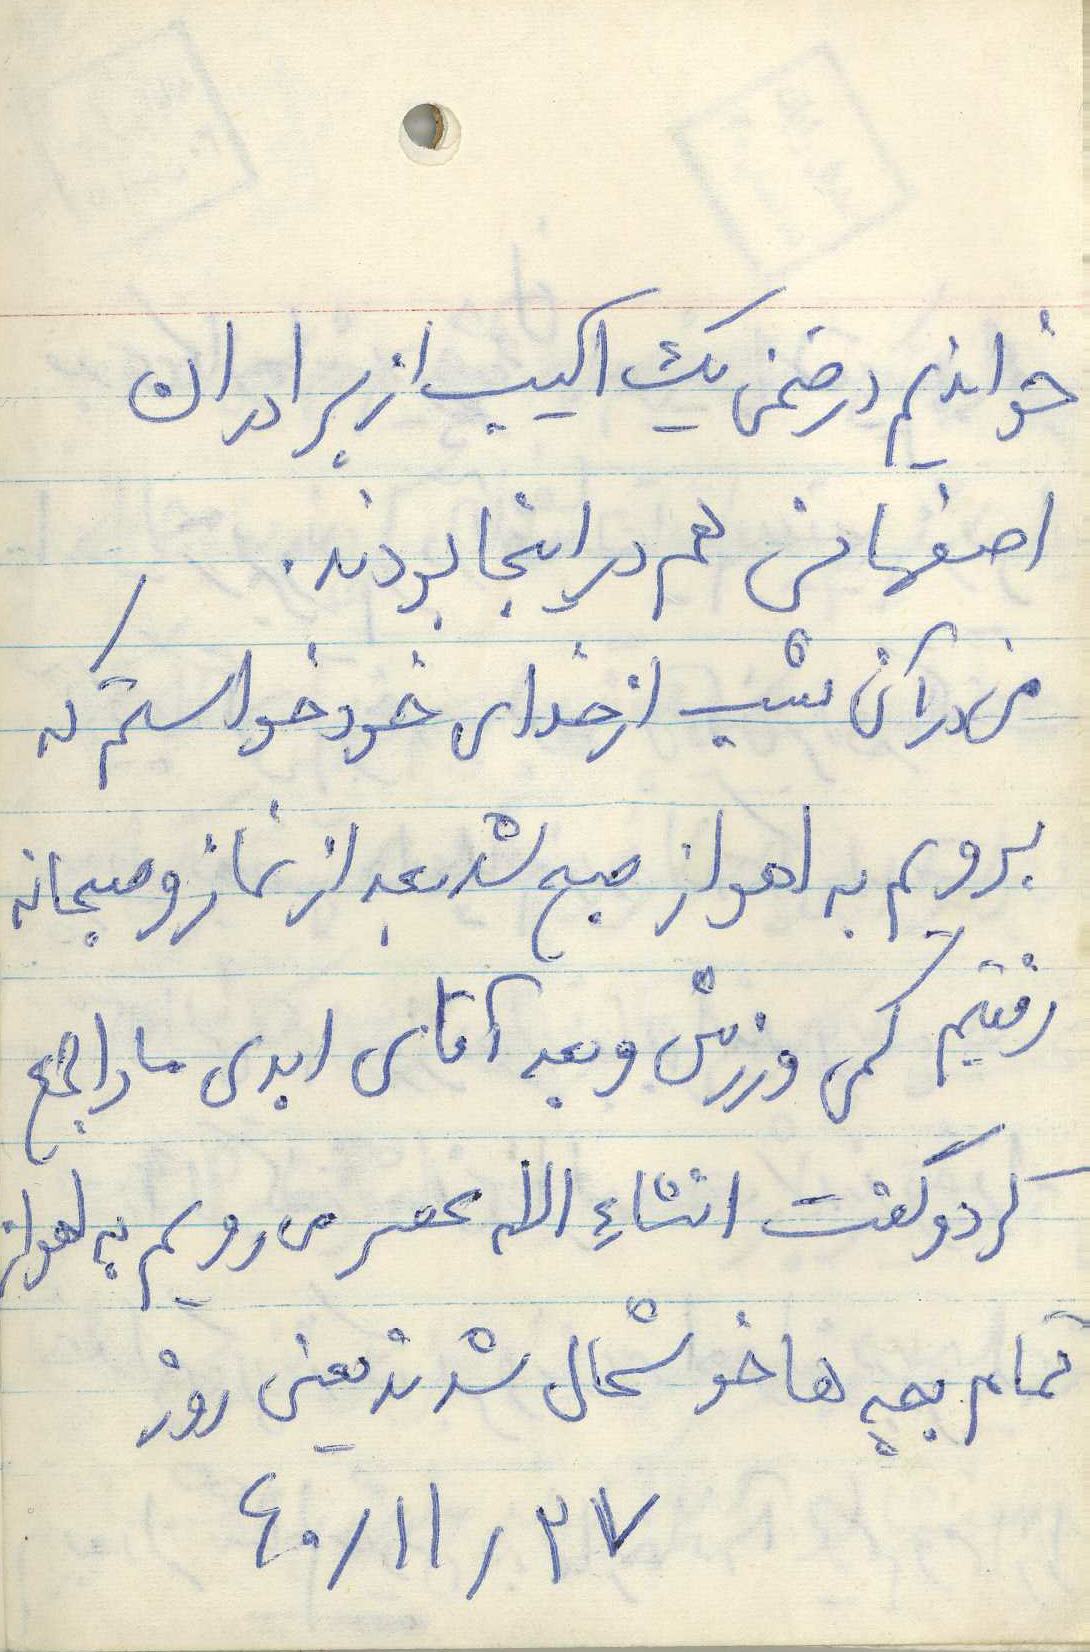 خواندیم درضمن یک اکیپ از برادران
اصفهانی هم در اینجا بودند.
من در آن شب از خدای خود خواستم که
برویم به اهواز صبح شد بعد از نماز و صبحانه
رفتیم کمی ورزش و بعد آقای ابدی ما را جمع
کرد و گفت انشاءِ الله عصر می رویم به اهواز
تمام بچه ها خوشحال شدند یعنی روز
۲۷ / ۱۱ / ۶۰